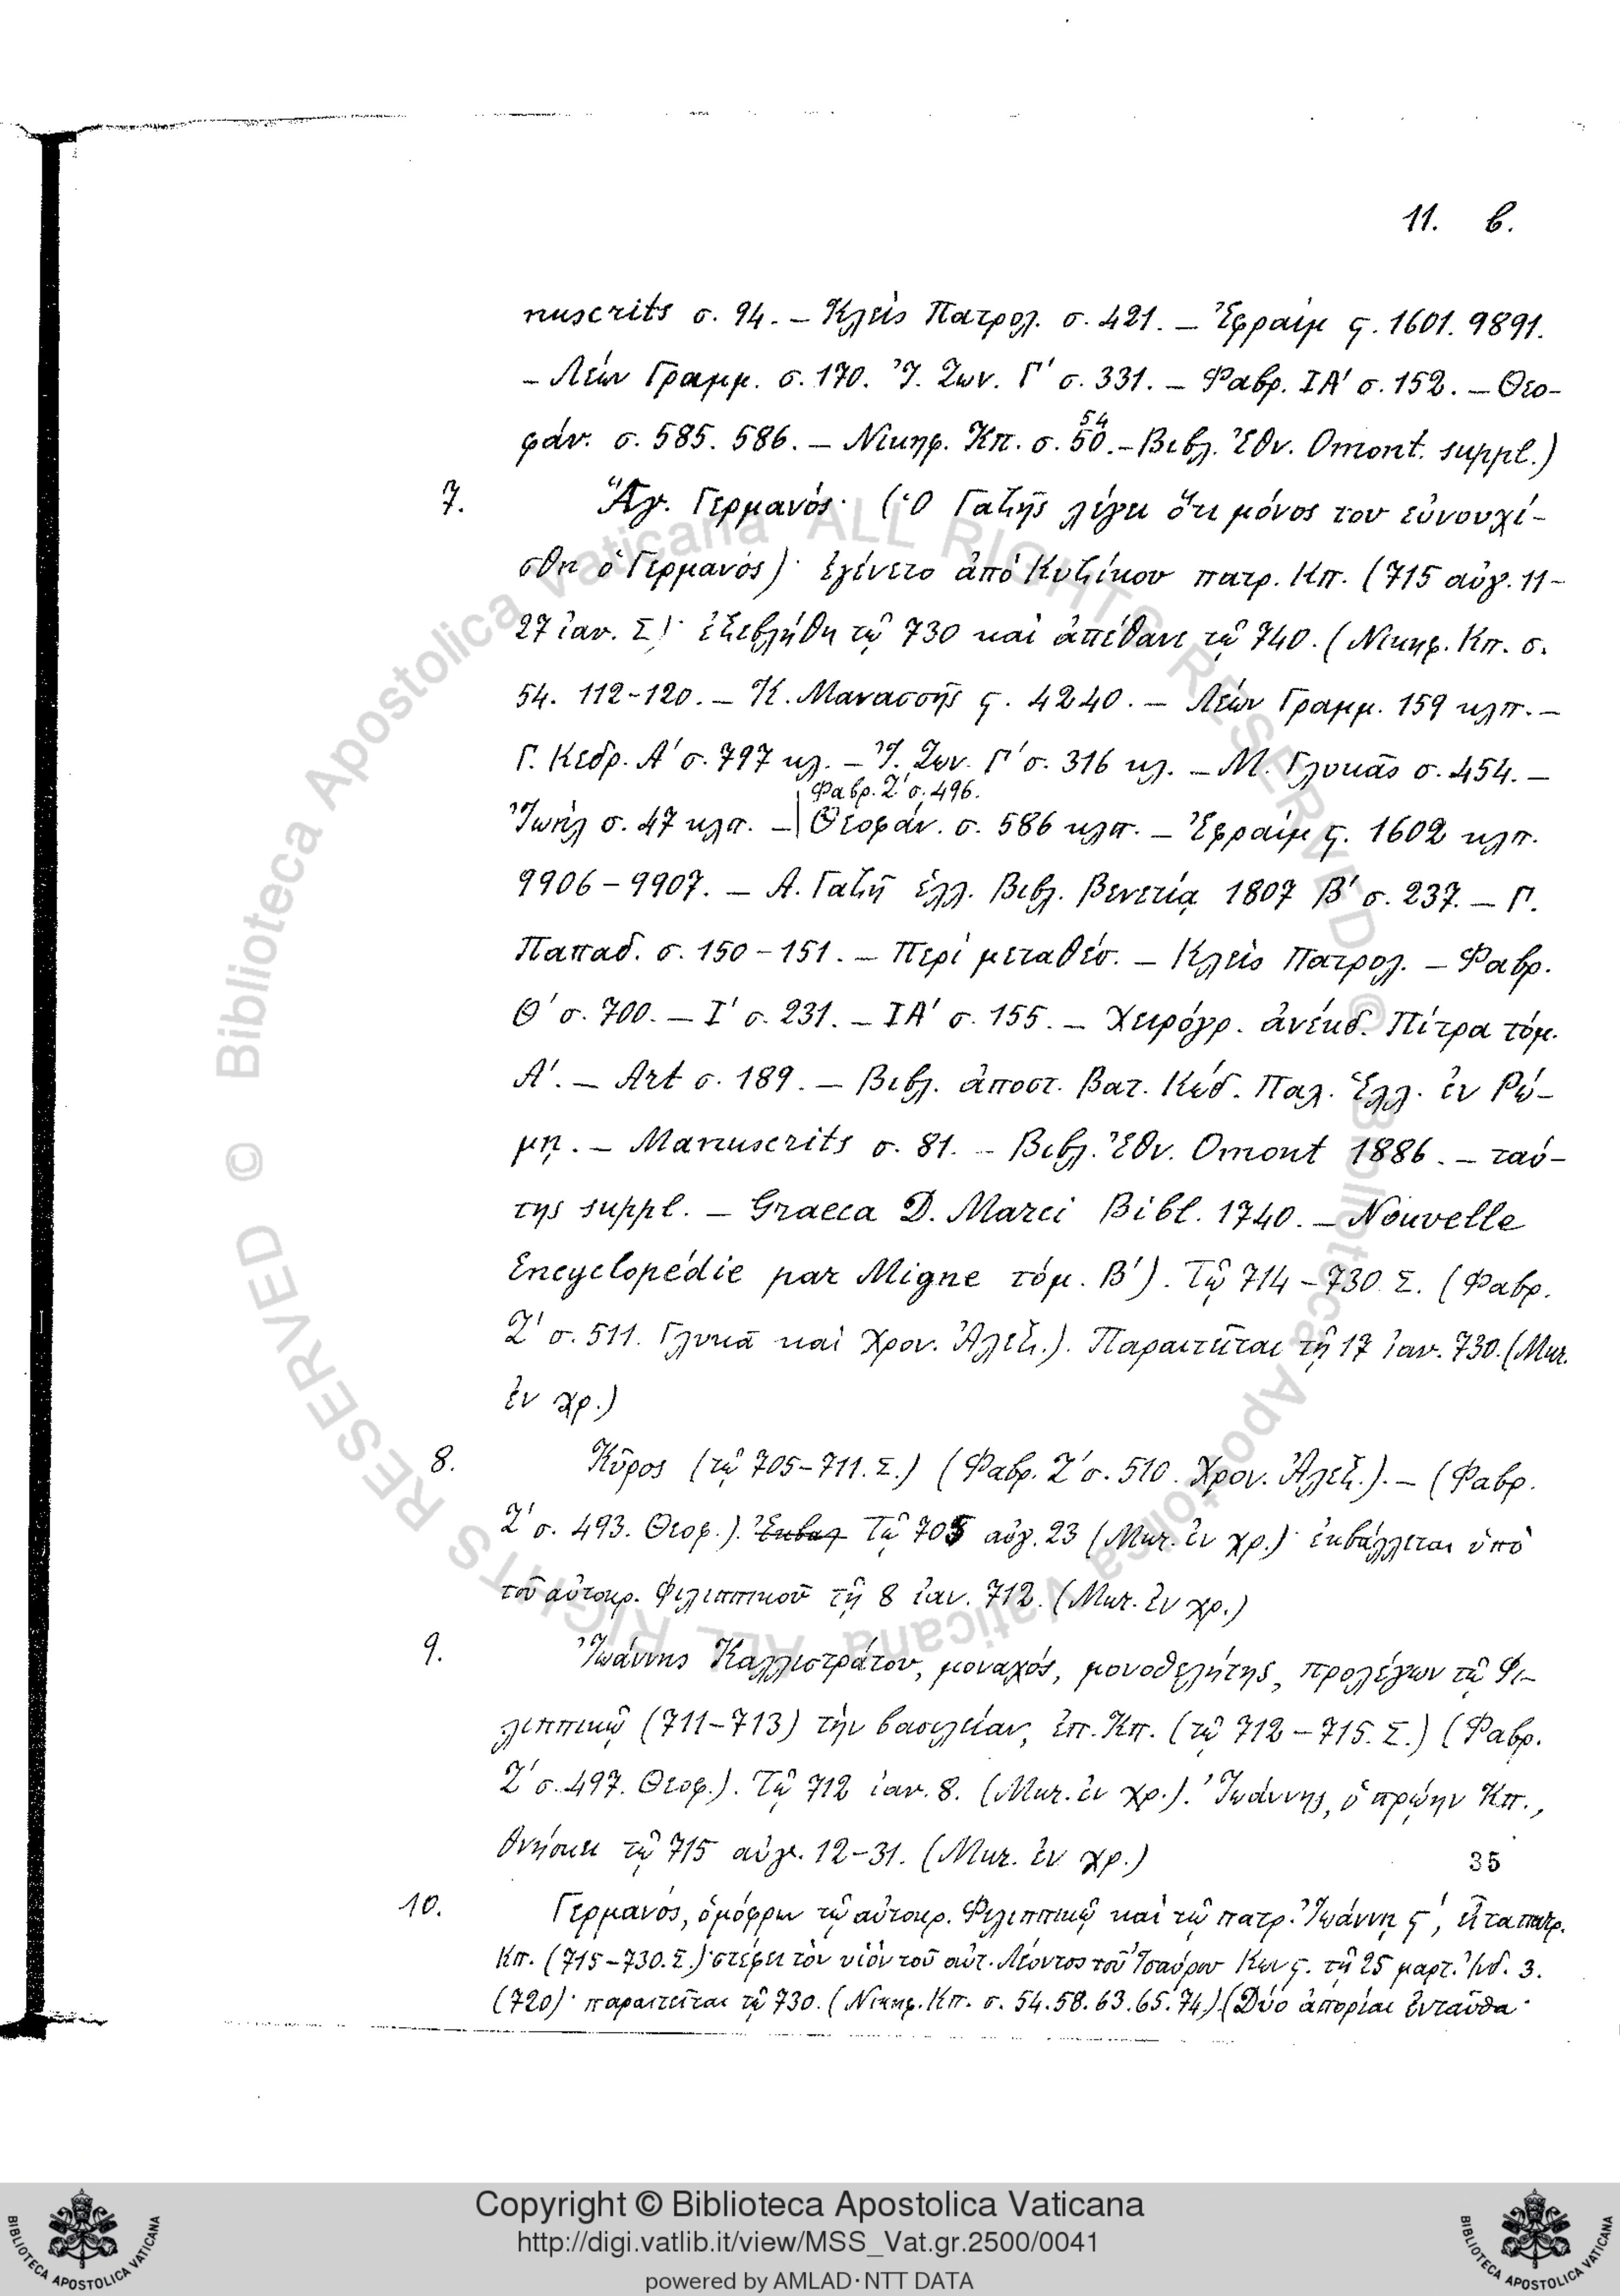 11. β.
nuscrits σ. 94. – Κλεὶς Πατρολ. σ. 421. – Ἐφραὶμ ς. 1601. 9891.
– Λέων Γραμμ. σ. 170. Ἰ. Ζων. Γ΄ σ. 331. – Φαβρ. ΙΑ΄ σ. 152. – Θεο-
54
φάν. σ. 585. 586. – Νικηφ. Κπ. σ. 50. – Βιβλ. Ἐθν. Omont. suppl.)
7. Ἅγ. Γερμανός· (Ὁ Γαζῆς λέγει ὅτι μόνος του εὐνουχί-
σθη ὁ Γερμανός)· ἐγίνετο ἀπὸ Κυζίκου πατρ. Κπ. (715 αὐγ. 11-
27 ἰαν. Σ)· ἐξεβλήθη τῷ 730 καὶ ἀπέθανε τῷ 740. (Νικηφ. Κπ. σ.
54. 112-120. – Κ. Μανασσῆς ς. 4240. – Λέων Γραμμ. 159 κλπ. –
Γ. Κεδρ. Α΄ σ. 797 κλ. – Ἰ. Ζων. Γ΄ σ. 316 κλ. – Μ. Γλυκᾶς σ. 454. –
Φαβρ. Ζ΄ σ. 496.
Ἰωὴλ σ. 47 κλπ. – | Θεοφάν. σ. 586 κλπ. – Ἐφραὶμ ς. 1602 κλπ.
9906 – 9907. – Α. Γαζῆ ἑλλ. Βιβλ. Βενετίᾳ 1807 Β΄ σ. 237. – Γ.
Παπαδ. σ. 150 – 151. – Περὶ μεταθέσ. – Κλεὶς Πατρολ. – Φαβρ.
Θ΄ σ. 700. – Ι΄ σ. 231. – ΙΑ΄ σ. 155. – Χειρόγρ. ἀνέκδ. Πίτρα τόμ.
Α΄. – Art σ. 189. – Βιβλ. ἀποστ. Βατ. Κώδ. Παλ. Ἑλλ. ἐν Ρώ-
μῃ. – Manuscrits σ. 81. – Βιβλ. Ἐθν. Omont 1886. – ταύ-
της suppl. – Graeca D. Marci Bibl. 1740. – Nouvelle
Encyclopédie par Migne τόμ. Β΄). Τῷ 714 – 730 Σ. (Φαβρ.
Ζ΄ σ. 511. Γλυκᾶ καὶ Χρον. Ἀλεξ.). Παραιτεῖται τῇ 17 ἰαν. 730. (Mur.
ἐν χρ.)
8. Κῦρος (τῷ 705-711. Σ.) (Φαβρ. Ζ΄ σ. 510. Χρον. Ἀλεξ.). – (Φαβρ.
Ζ΄ σ. 493. Θεοφ.). Ἐκβαλ Τῷ 705 αὐγ. 23 (Mur. ἐν χρ.)· ἐκβάλλεται ὑπὸ
τοῦ αὐτοκρ. Φιλιππικοῦ τῇ 8 ἰαν. 712. (Mur. ἐν χρ.)
9. Ἰωάννης Καλλιστράτου, μοναχός, μονοθελήτης, προλέγων τῷ Φι-
λιππικῷ (711-713) τὴν βασιλείαν, ἐπ. Κπ. (τῷ 712 – 715. Σ.) (Φαβρ.
Ζ΄ σ. 497. Θεοφ.). Τῷ 712 ἰαν. 8. (Mur. ἐν χρ.). Ἰωάννης, ὁ πρώην Κπ.,
θνήσκει τῷ 715 αὐγ. 12-31. (Mur. ἐν χρ.)
35
10. Γερμανός, ὁμόφρων τῷ αὐτοκρ. Φιλιππικῷ καὶ τῷ πατρ. Ἰωάννῃ ς΄, εἶτα πατρ.
Κπ. (715-730. Σ.)· στέφει τὸν υἱὸν τοῦ αὐτ. Λέοντος τοῦ Ἰσαύρου Κων ς. τῇ 25 μαρτ. Ἰνδ. 3.
(720)· παραιτεῖται τῷ 730. (Νικηφ. Κπ. σ. 54. 58. 63. 65. 74). (Δύο ἀπορίαι ἐνταῦθα·
© Biblioteca Apostolica Vaticana ALL RIGHTS RESERVED
© Biblioteca Apostolica Vaticana ALL RIGHTS RESERVED
Copyright © Biblioteca Apostolica Vaticana
http://digi.vatlib.it/view/MSS_Vat.gr.2500/0041
powered by AMLAD·NTT DATA
BIBLIOTECA APOSTOLICA VATICANA
BIBLIOTECA APOSTOLICA VATICANA